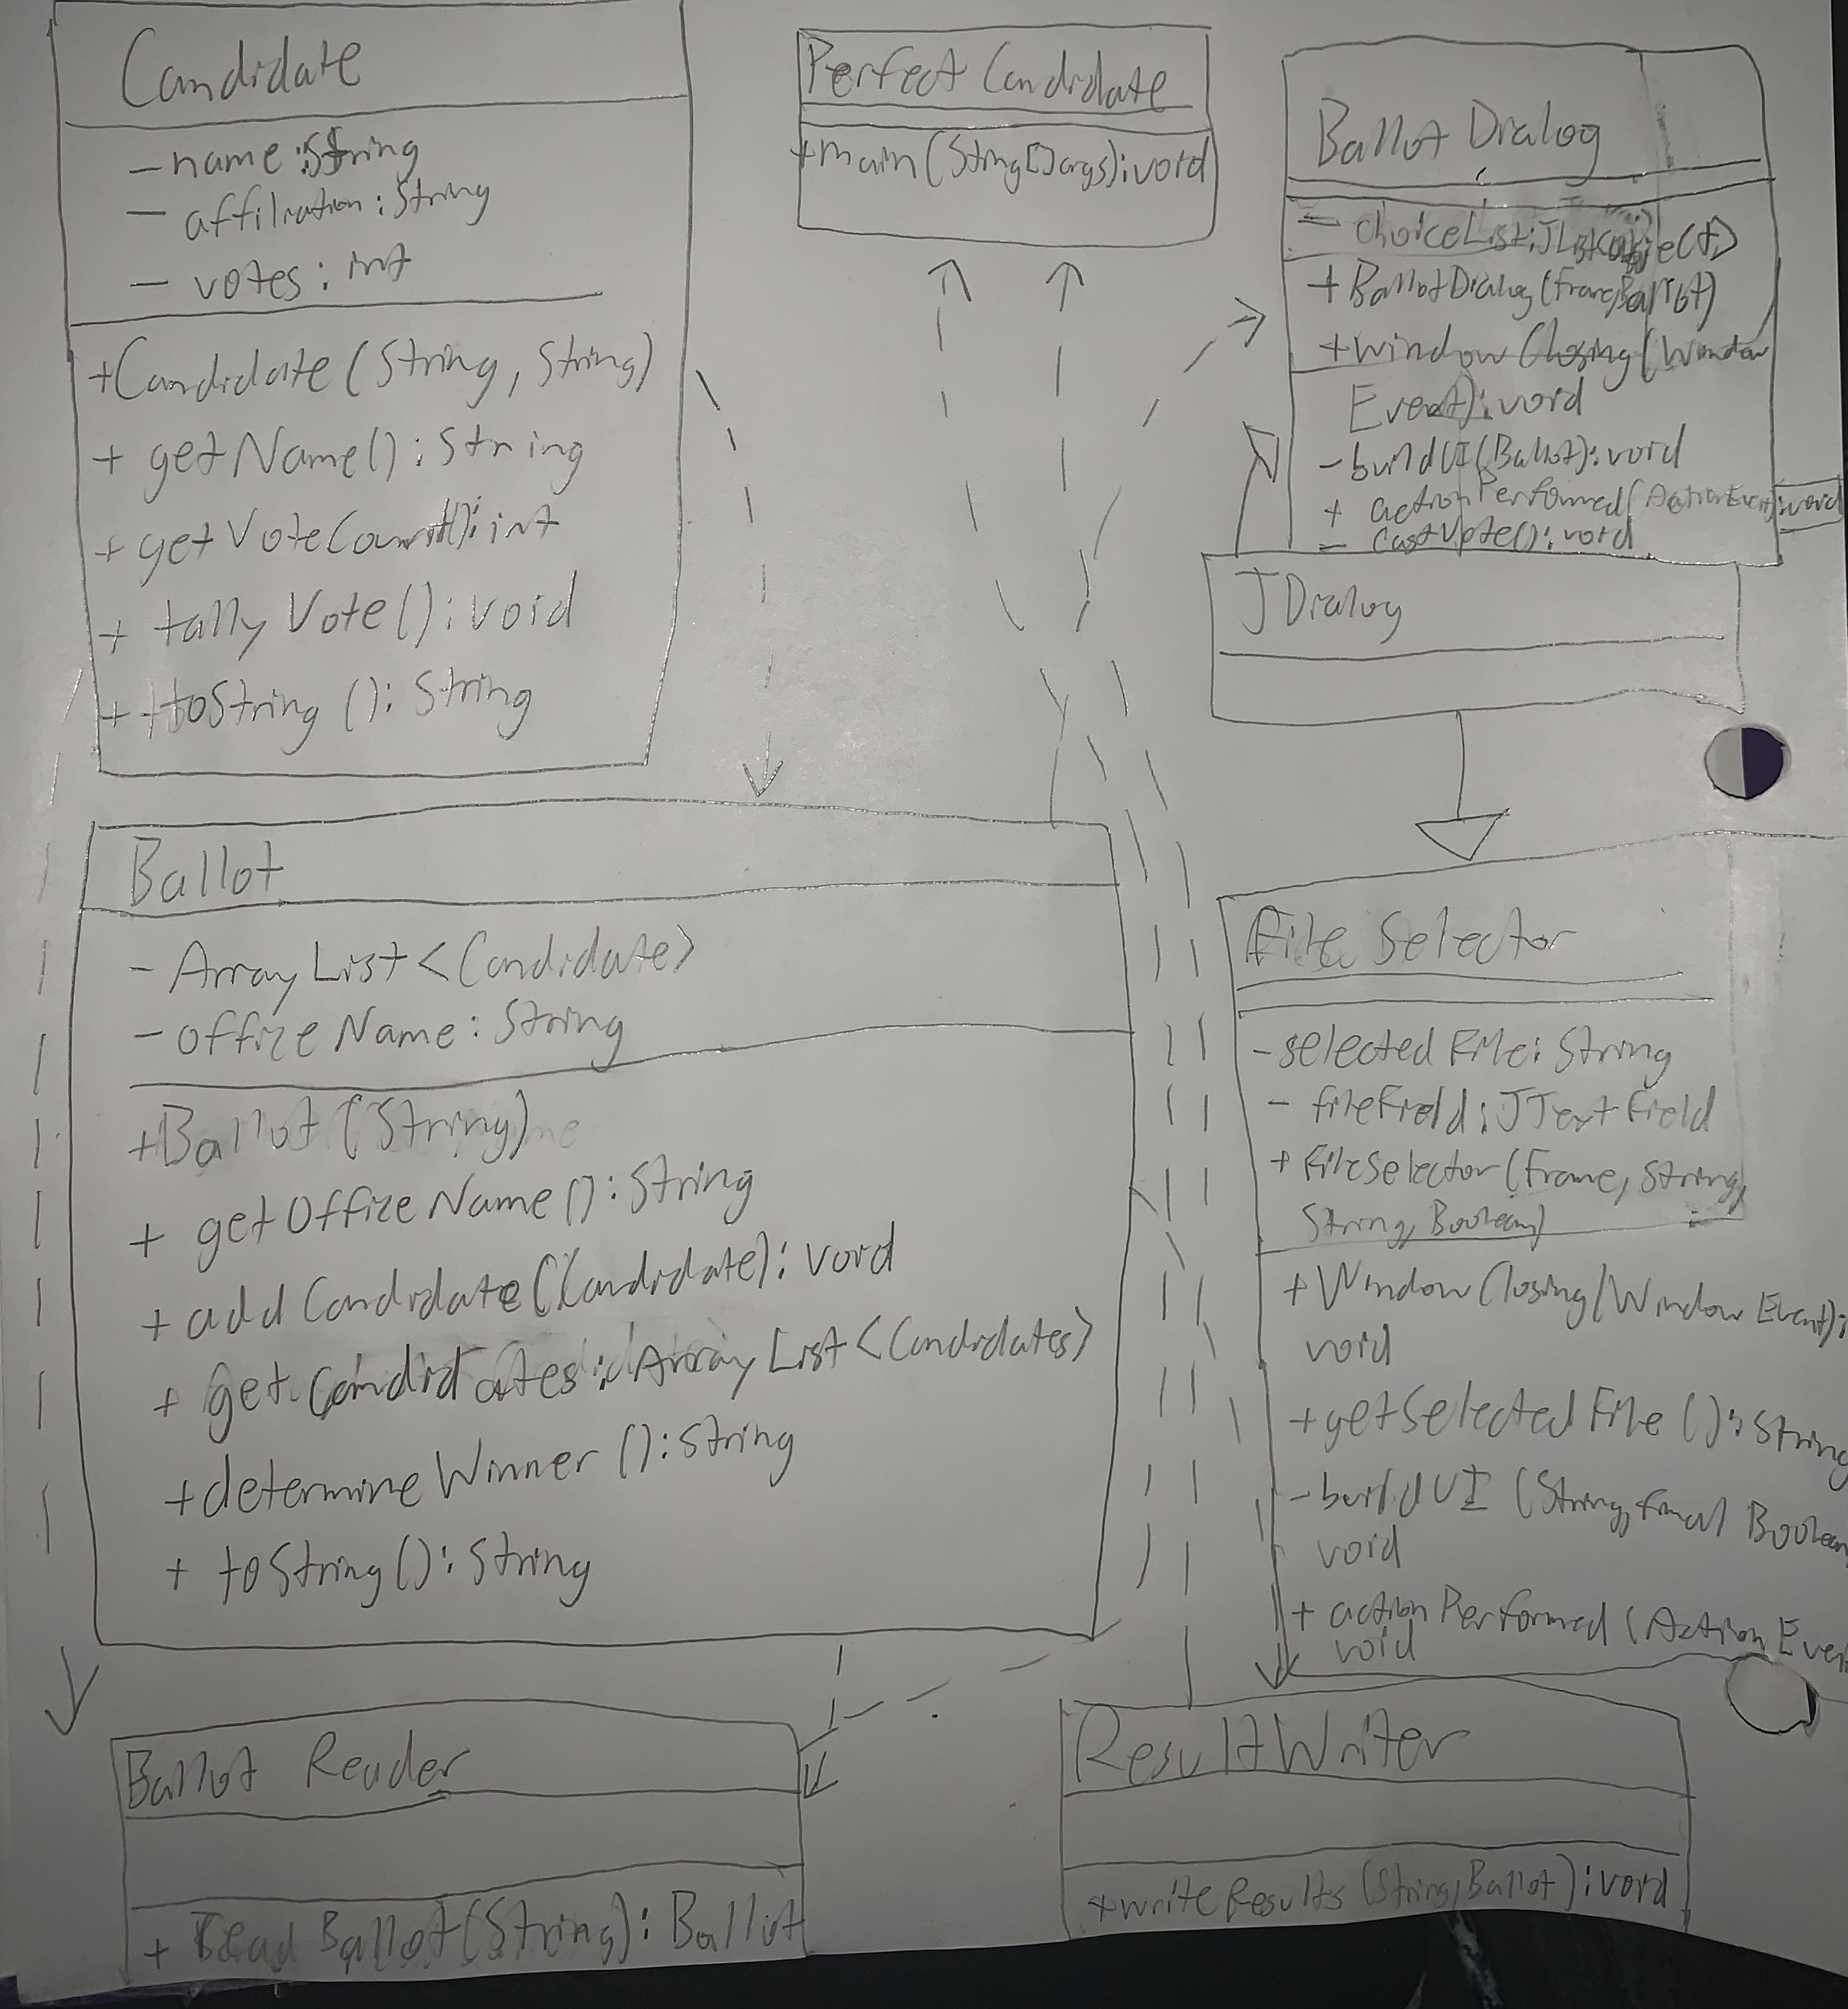 Candidate
- name: String
- affiliation: String
- votes: int
+ Candidate (String, String)
+ getName(): String
+ getVoteCount(): int
+ tallyVote(): void
+ toString(): String
Perfect Candidate
+ main(String[] args): void
Ballot Dialog
- choiceList: JList<Object>
+ BallotDialog(Frame, Ballot)
+ windowClosing(Window
Event): void
- buildUI(Ballot): void
+ actionPerformed(ActionEvent): void
- castVote(): void
JDialog
Ballot
- ArrayList<Candidate>
- officeName: String
+ Ballot (String)
+ getOfficeName(): String
+ addCandidate(Candidate): void
+ getCandidates: ArrayList<Candidates>
+ determineWinner(): String
+ toString(): String
File Selector
- selectedFile: String
- fileField: JTextField
+ FileSelector(Frame, String,
String, Boolean)
+ WindowClosing(WindowEvent):
void
+ getSelectedFile(): String
- buildUI (String, final Boolean
void
+ actionPerformed (Action Even
void
Ballot Reader
+ readBallot(String): Ballot
ResultWriter
+ writeResults (String, Ballot): void